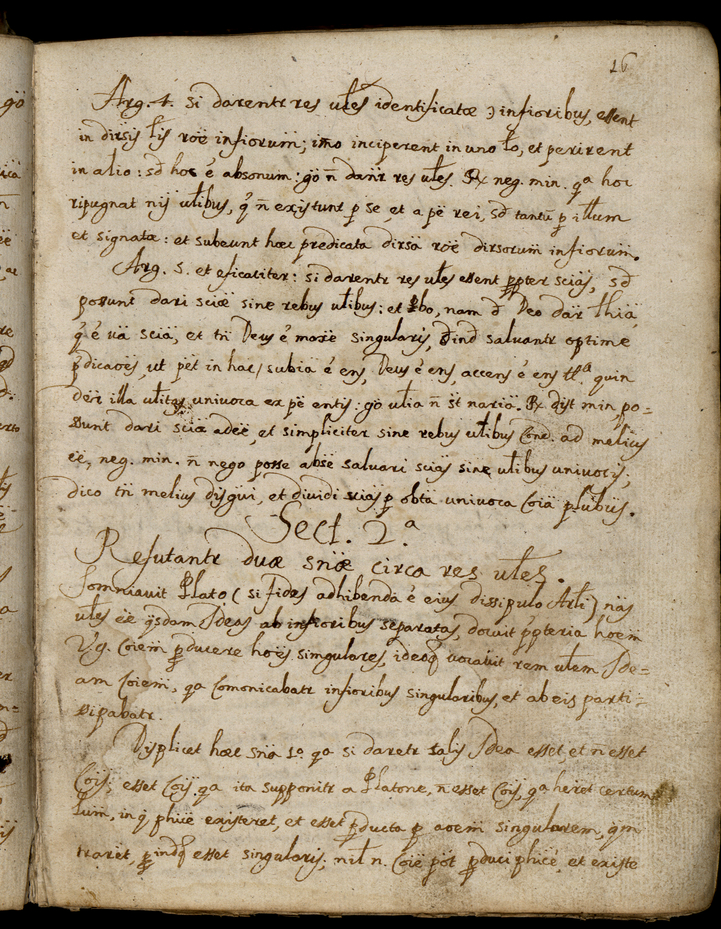 26
Arg. 4. si darentr res utēs identificatæ infioribus, essent
in dirsis roē infiorum; imo inciperent in uno, et perirent
in alio: sd hoc é absonum: gō n̄ dantr res utēs. Rx neg. min. qª hoc
ripugnat nisi utibus, q̄ n̄ existunt p se, et a pē rei, sd tantū p illum
et signatæ: et subeunt hæc predicata dirsa roē dirsorum infiorum.
Arg. 5. et eficaciter: si darentr res utēs essent ppter scias, sd
possunt dari sciæ sine rebus utibus: et pbo, nam d Deo dar thia,
q̄ é uā scia, et tn̄ Deus é maxē singularis, dind salvantr optime
pdicaoēs, ut pēt in hac, subia é ens, Deus é ens, accens é ens, quin
deir illa utitas univoca ex pē entis: gō utia n̄ st naria. Rx dist min, po=
sunt dari sciæ adeē, et simpliciter sine rebus utibus Cond. ad melius
eē, neg. min. n̄ nego posse absē salvari scias sine utibus univocis;
dico tn̄ melius disgui, et dividi scias p obta univoca Coia plibus.
Sect. 2.ª
Refutantr duæ snæ circa res utēs.
Somniavit Plato (si fides adhibenda é eius dissipulo Arli) nas
utēs eē qsdam Ideas ab infioribus separatas, docuit ppteria hoem
V.g. Coiem pducere hoēs singulares, ideoq vocavit rem utem Ide=
am Coiem, qa Comonicabatr infioribus singularibus, et ab eis parti=
sipabatr.
Displicet hæc sna 1º qa si daretr talis Idea esset, et n̄ esset
Cois; esset Cois, qa ita supponitr a Platone, n̄ esset Cois, qa heret certum
lum, in q phicē existeret, et esset pducta p aoem singularem, qm
traret, pindq esset singularis; nil n. Coiē pōt pduci phicē, et existe